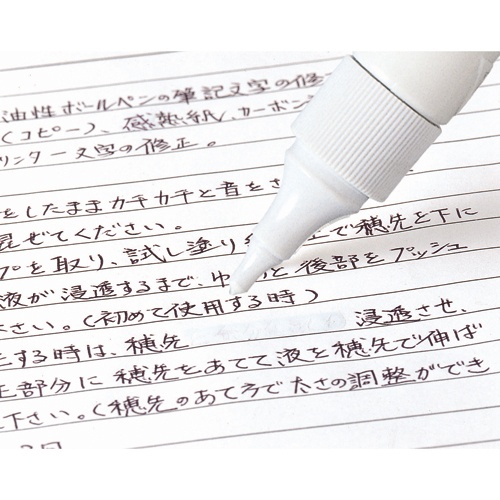 油性ボールペンの筆記文字の修
(コピー)、感熱紙、カーボン
リンター文字の修正。
をしたままカチカチと音をさ
混ぜてください。
プを取り、試し塗り で穂先を下に
液が浸透するまで、ゆ と後部をプッシュ
さい。(初めて使用する時)
とする時は、穂先 浸透させ、
正部分に穂先をあてて液を穂先で伸ば
下さい。(穂先のあて方で太さの調整ができ